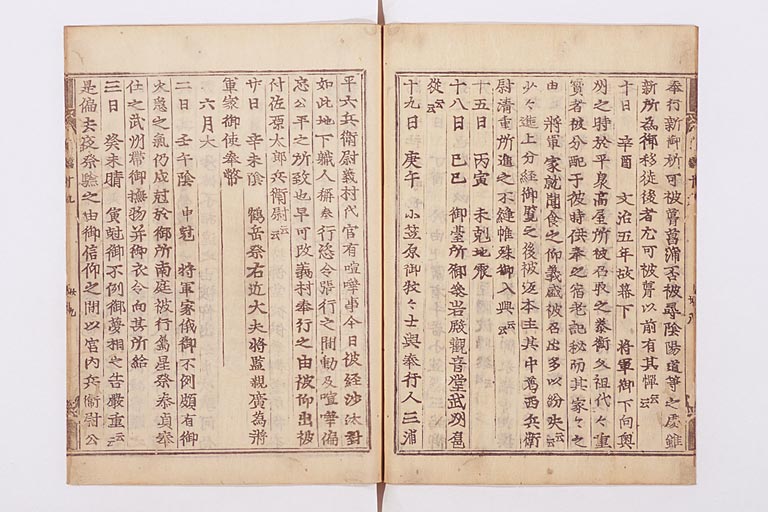 奉行新御所可被葺菖蒲否被尋陰陽道等之處雖
新所為御移徙後者尤可被葺以前有其憚云云
十日　辛酉　文治五年故幕下　将軍御下向奥
州之時於平泉高屋所被召取之泰衡久祖代々重
寶者被分配于彼時供奉之宿老記秘而其家々之
由　将軍家就聞食之仰義盛被召出多以紛失云云
少々進上分経御覧之後被返本主其中為西兵衛
尉清重所進之不縫帷殊御入興云云
十五日　丙寅　未剋地震
十八日　己巳　御堂所御参岩殿觀音堂武州扈
從云云
十九日　庚午　小笠原御牧々士與奉行人三浦
平六兵衛尉義村代官有喧嘩事今日被経沙汰對
如此地下職人稱奉行恣令張行之間動及喧嘩偏
忘公平之所致也早可改義村奉行之由被仰出被
付佐原太郎兵衛尉云云
廿日　辛未陰　鶴岳祭右近大夫将監親廣為将
軍家御使奉幣
六月大
二日　壬午陰　申剋　将軍家俄御不例頗有御
火急之氣仍戌剋於御所南庭被行属星祭泰貞奉
仕之武州帶御撫物并御衣令向其所給
三日　癸未晴　寅剋御不例御夢相之告嚴重云云
是偏去夜祭驗之由御信仰之間以宮内兵衛尉公